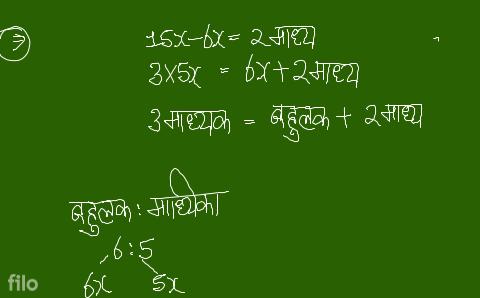 ⇒ 15x-6x = 2माध्य
3×5x = 6x+2माध्य
3माध्यक = बहुलक + 2माध्य
बहुलक : माध्यिका
6:5
6x 5x
filo